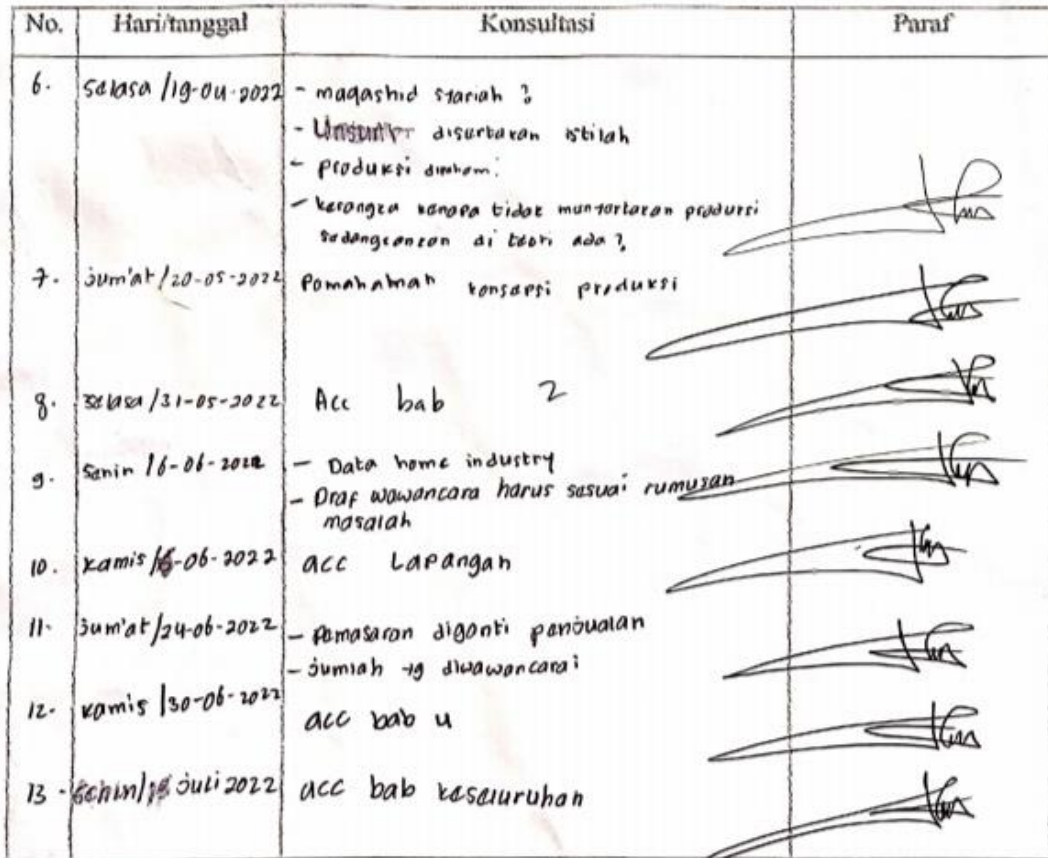 No. Hari/tanggal Konsultasi Paraf
6. Selasa /19-04-2022 - maqashid syariah ?
- disertakan istilah
- produksi
- kerangka kenapa tidak menyertakan produksi
sedangkan di teori ada ?
7. Jum'at /20-05-2022 Pemahaman konsepsi produksi
8. Selasa /31-05-2022 Acc bab 2
9. Senin /6-06-2022 - Data home industry
- Draf wawancara harus sesuai rumusan
masalah
10. Kamis / -06-2022 acc Lapangan
11. Jum'at /24-06-2022 - Pemasaran diganti penjualan
- Jumlah yg diwawancarai
12. Kamis /30-06-2022 acc bab 4
13. Senin/ Juli 2022 acc bab keseluruhan